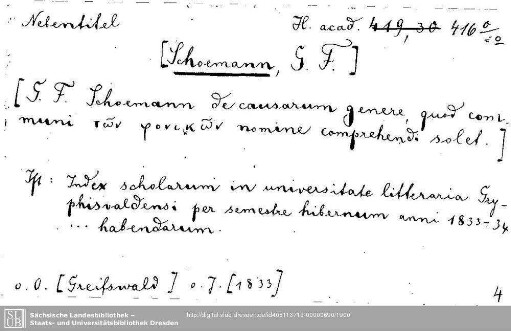 Nebentitel
H. acad. 419, 30 416 0/20
[Schoemann, G. F.]
[G. F. Schoemann de causarum genere, quod com-
muni τῶν φονικῶν nomine comprehendi solet.]
Index scholarum in universitate litteraria Gry-
phisvaldensi per semestre hibernum anni 1833-34
... habendarum.
o. O. [Greifswald] o. J. [1833]
4
SLUB
Sächsische Landesbibliothek –
Staats- und Universitätsbibliothek Dresden